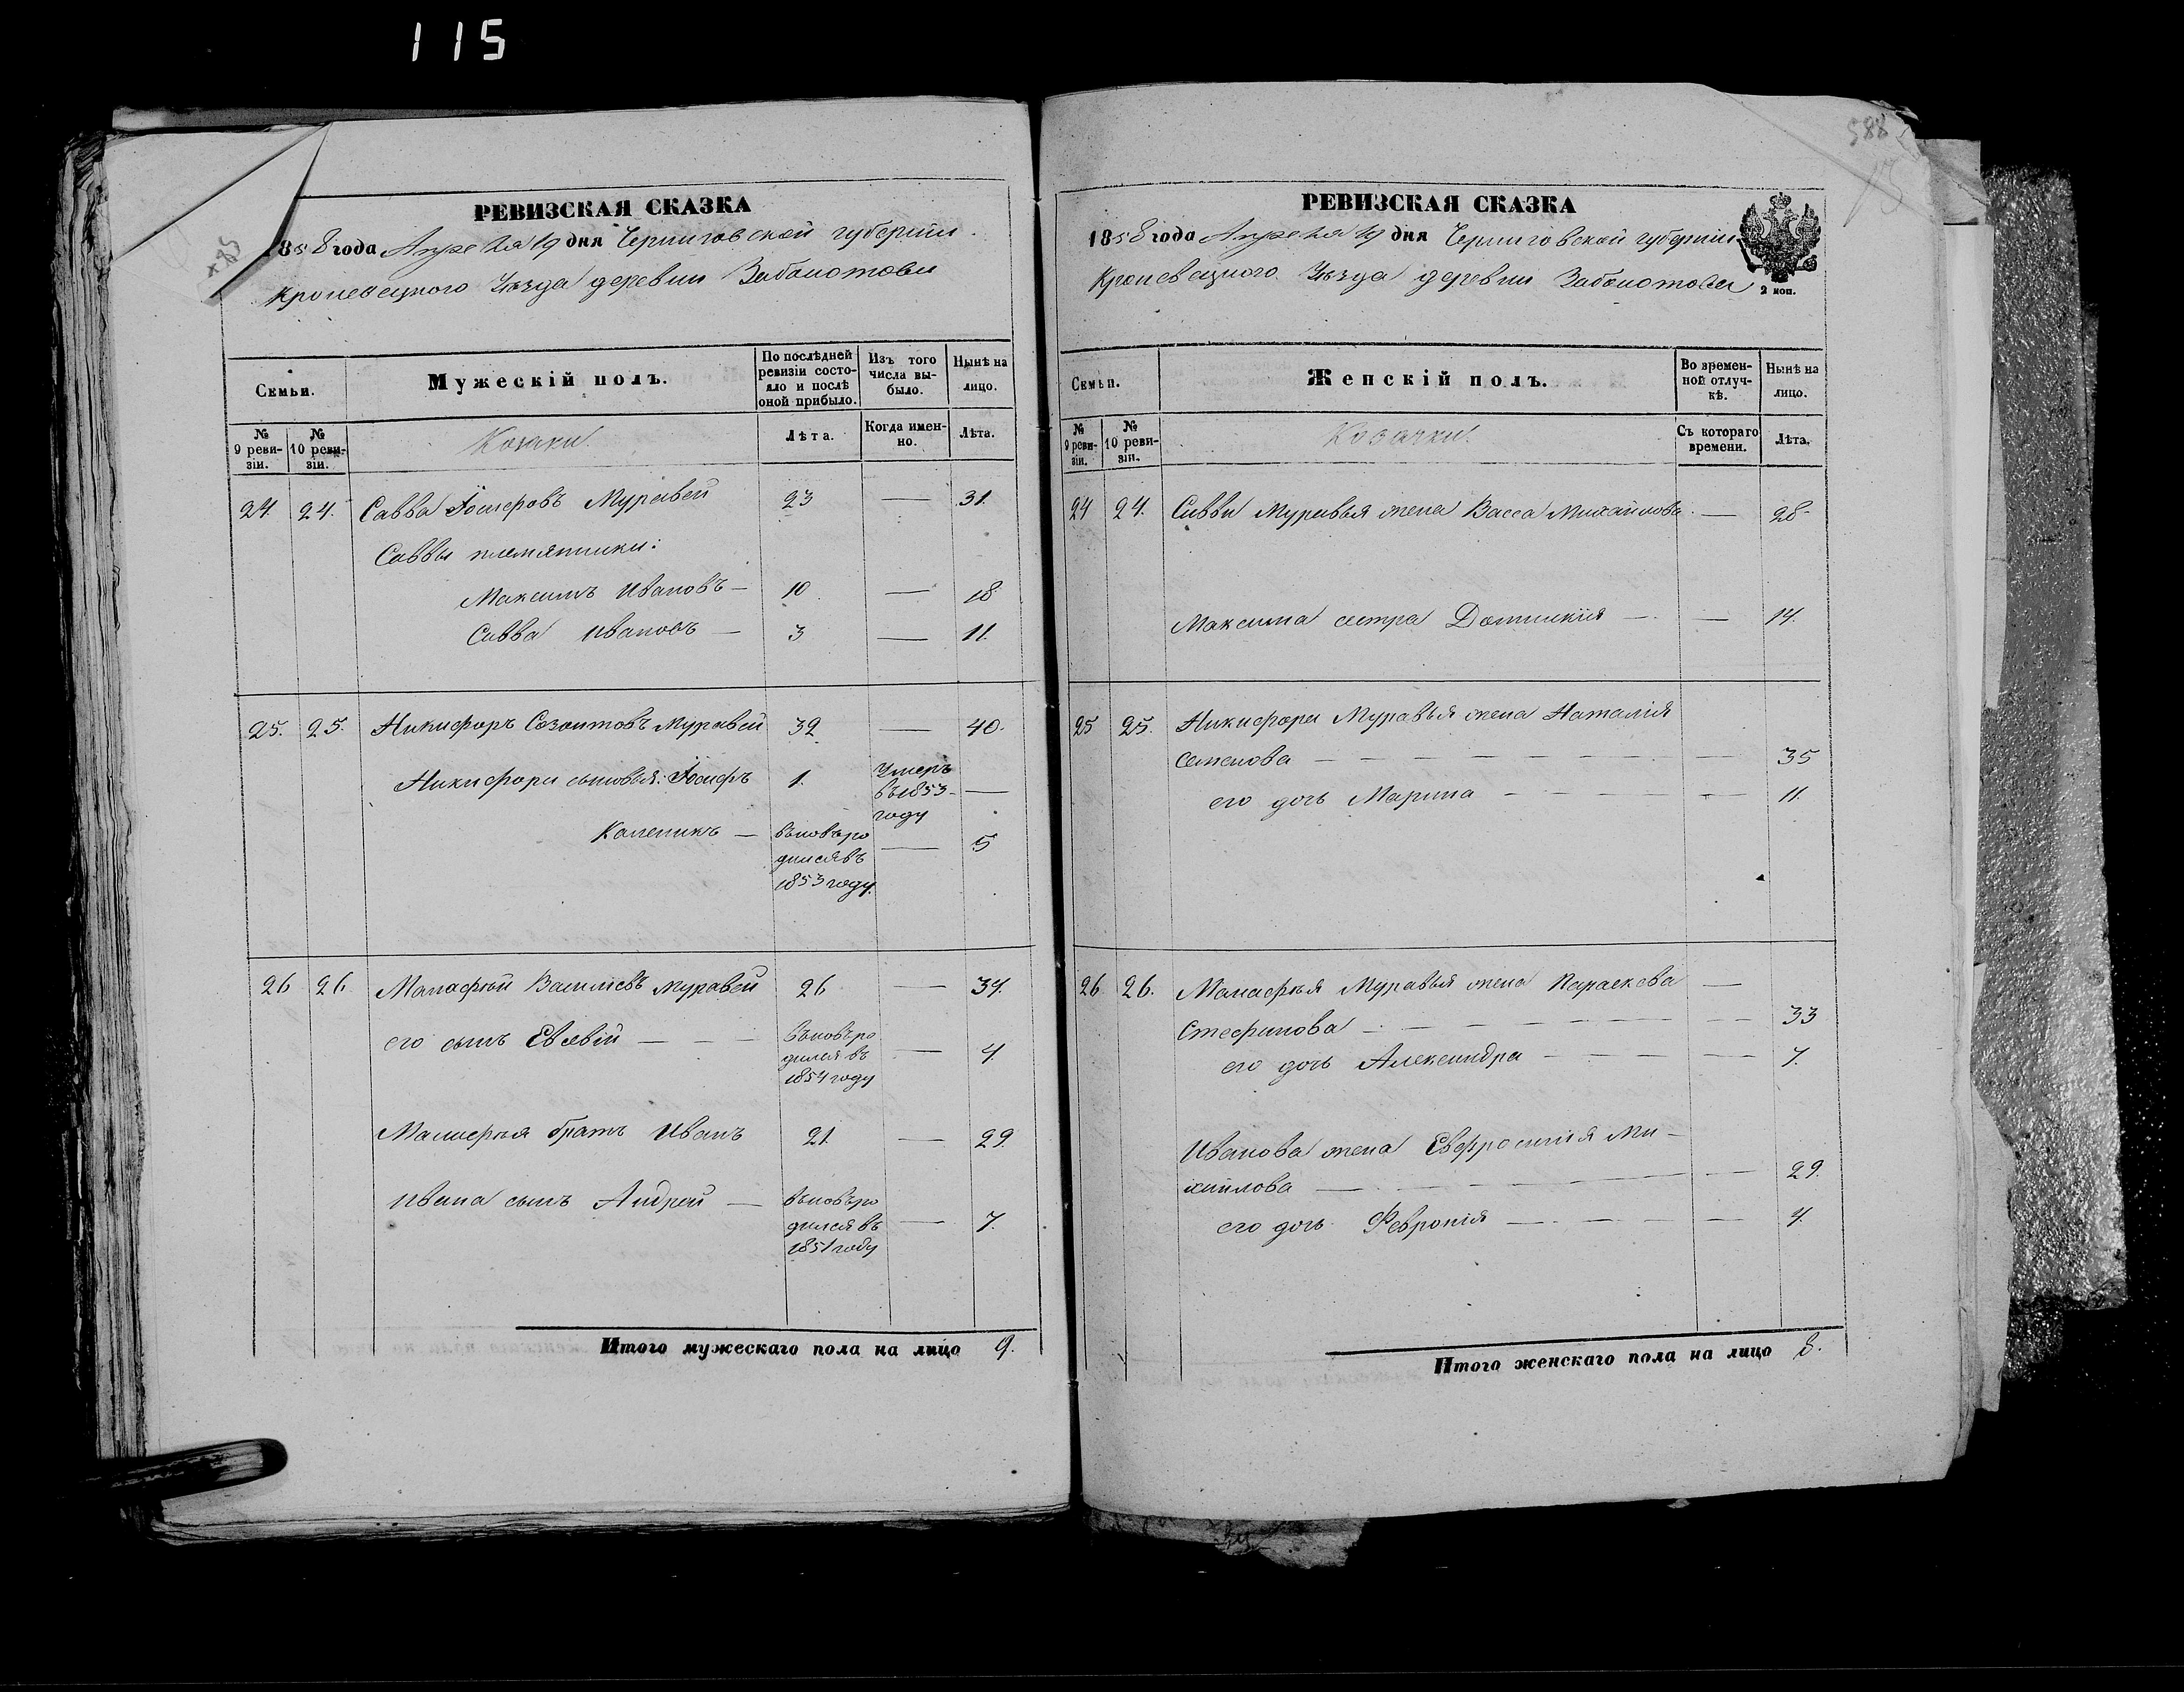 115
РЕВИЗСКАЯ СКАЗКА
1858 года Апреля 19 дня Черниговской губернии
Кролевецкого Уѣзда деревни Заболотовы
Семьи.
Мужескій полъ.
По послѣдней ревизіи состояло и послѣ оной прибыло.
Изъ того числа выбыло.
Нынѣ на лицо.
№ 9 ревизіи.
№ 10 ревизіи.
Козаки.
Лѣта.
Когда именно.
Лѣта.
24. 24. Савва Іосифовъ Муравей 23 — 31.
Саввы племянники:
Максимъ Ивановъ — 10 — 18
Савва Ивановъ — 3 — 11.
25. 25. Никифоръ Созонтовъ Муравей 32 — 40.
Никифора сыновья: Іосифъ 1. Умеръ въ 1853 году —
Каленикъ — вновь родился въ 1853 году. — 5
26 26 Манафѣй Василіевъ Муравей 26 — 34.
его сынъ Евсевій — — — вновь родился въ 1854 году — 4.
Манафѣя братъ Иванъ 21. — 29.
Ивана сынъ Андрей — вновь родился въ 1851 году — 7.
Итого мужескаго пола на лицо 9.
588
РЕВИЗСКАЯ СКАЗКА
1858 года Апреля 19 дня Черниговской губернии
Кролевецкого Уѣзда деревни Заболотовы
2 коп.
Семьи.
Женскій полъ.
Во временной отлучкѣ.
Нынѣ на лицо.
№ 9 ревизіи.
№ 10 ревизіи.
Козачки.
Съ котораго времени.
Лѣта.
24 24. Саввы Муравья жена Васса Михайлова — 28
Максима сестра Домникія — — 14.
25 25. Никифора Муравья жена Наталія
Семенова — — 35
его дочь Марина — — 11.
26. 26. Манафѣя Муравья жена Параскева —
Стефанова — — 33
его дочь Александра — — 7.
Иванова жена Евфросинія Ми-
хайлова — — 29.
его дочь Февронія — — 4.
Итого женскаго пола на лицо 8.